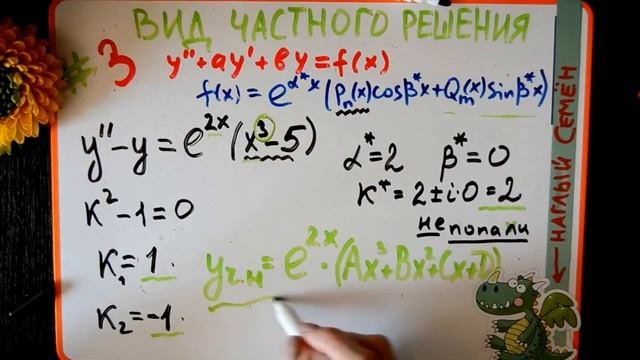 ВИД ЧАСТНОГО РЕШЕНИЯ
#3 y''+ay'+вy=f(x)
f(x)=e^{α*x}(P_n(x)cosβ*x+Q_m(x)sinβ*x)
y''-y=e^{2x}(x^3-5)
α*=2 β*=0
к*=2±i·0=2
не попали
к^2-1=0
к_1=1
y_{ч.н}=e^{2x}·(Ax^3+Bx^2+Cx+D)
к_2=-1
← НАГЛЫЙ СЕМЁН